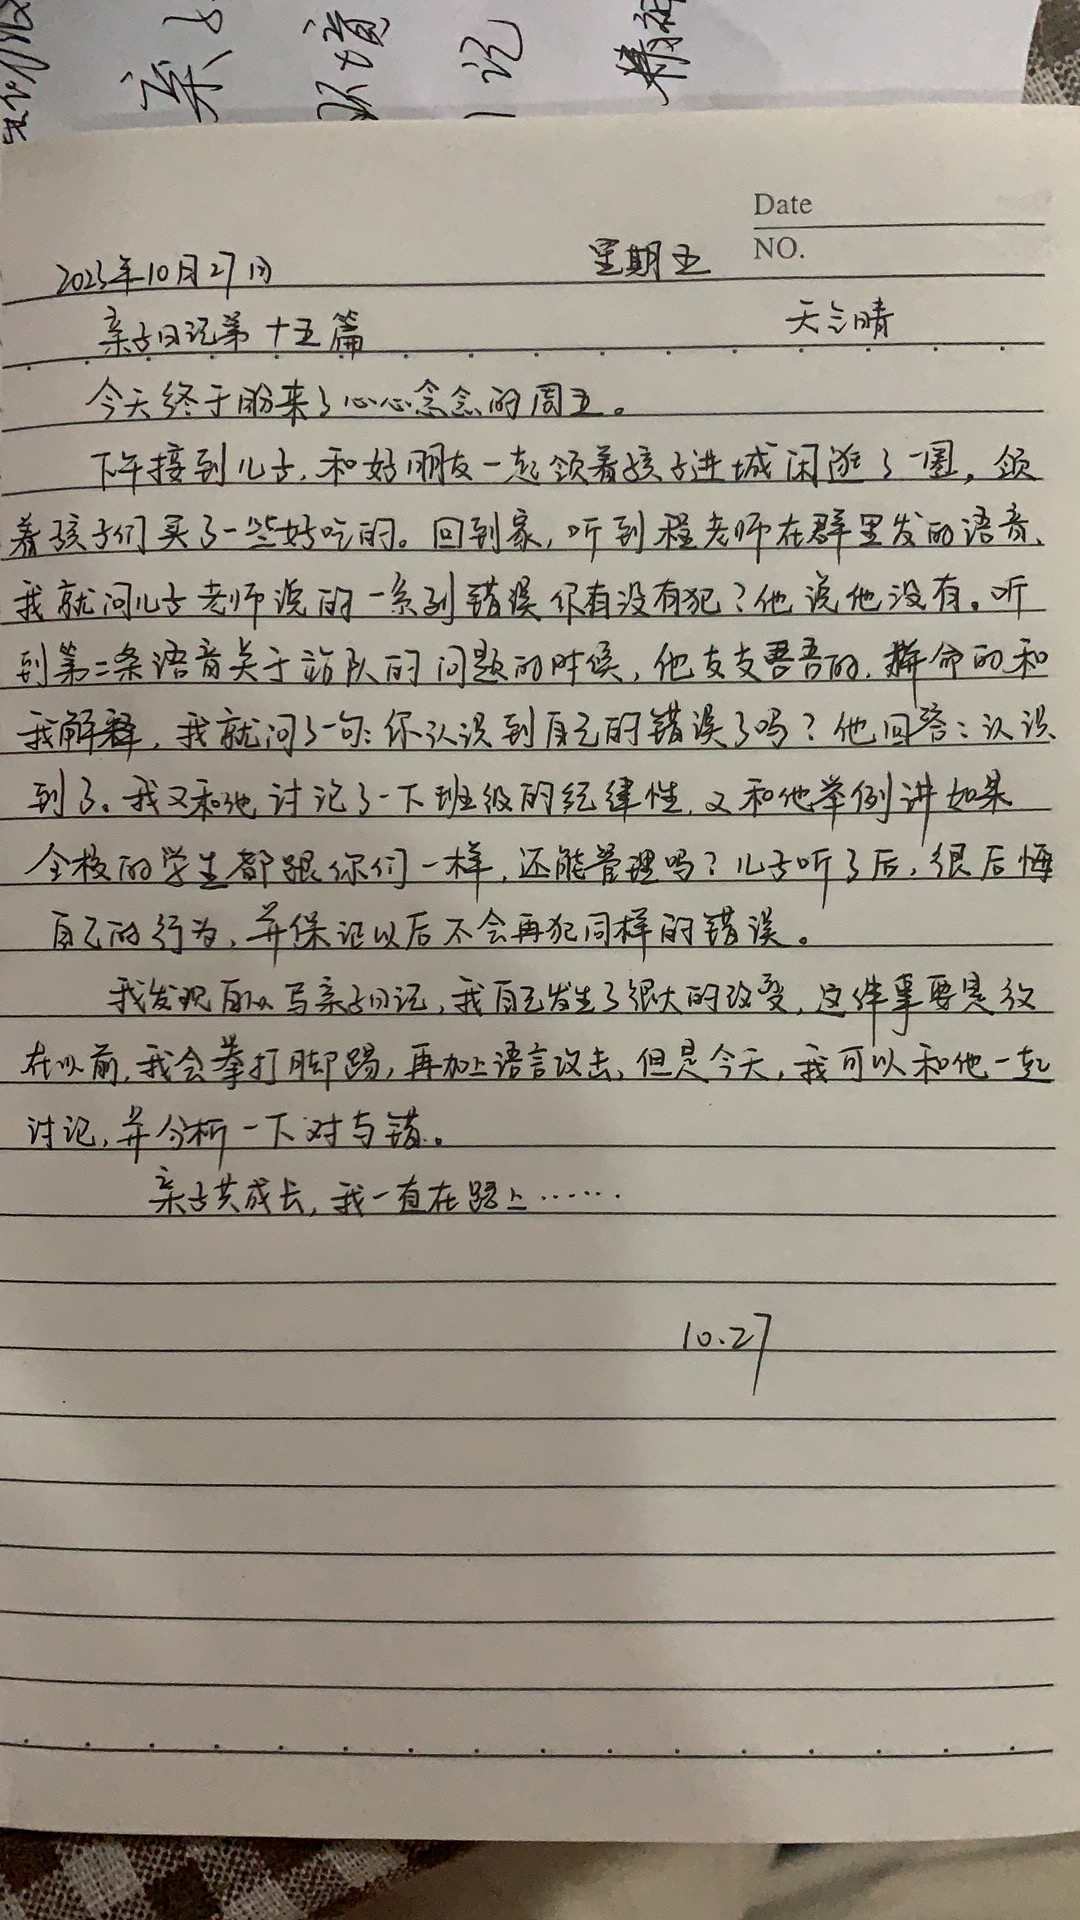 环境
记
Date
NO.
2023年10月27日 星期五
亲子日记第十五篇 天气晴
今天终于盼来了心心念念的周五。
下午接到儿子,和好朋友一起领着孩子进城闲逛了一圈,领
着孩子们买了一些好吃的。回到家,听到程老师在群里发的语音,
我就问儿子老师说的一系列错误你有没有犯?他说他没有。听
到第二条语音关于站队的问题的时候,他支支吾吾的,拼命的和
我解释,我就问了一句:你认识到自己的错误了吗?他回答:认识
到了。我又和他讨论了一下班级的纪律性,又和他举例讲如果
全校的学生都跟你们一样,还能管理吗?儿子听了后,很后悔
自己的行为,并保证以后不会再犯同样的错误。
我发现自从写亲子日记,我自己发生了很大的改变,这件事要是放
在以前,我会拳打脚踢,再加上语言攻击,但是今天,我可以和他一起
讨论,并分析一下对与错。
亲子共成长,我一直在路上……
10.27